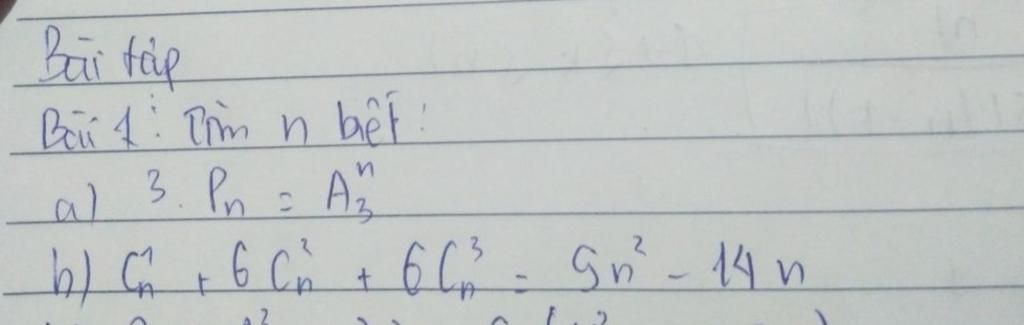 Bài tập
Bài 1: Tìm n biết:
a) 3. Pₙ = A₃ⁿ
b) Cₙ¹ + 6Cₙ² + 6Cₙ³ = 9n² - 14n